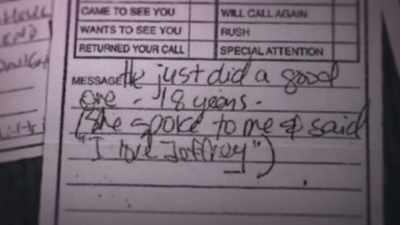 CAME TO SEE YOU WILL CALL AGAIN
WANTS TO SEE YOU RUSH
RETURNED YOUR CALL SPECIAL ATTENTION
MESSAGE He just did a good
one - 18 years.
(She spoke to me & said
"I love Jeffrey")